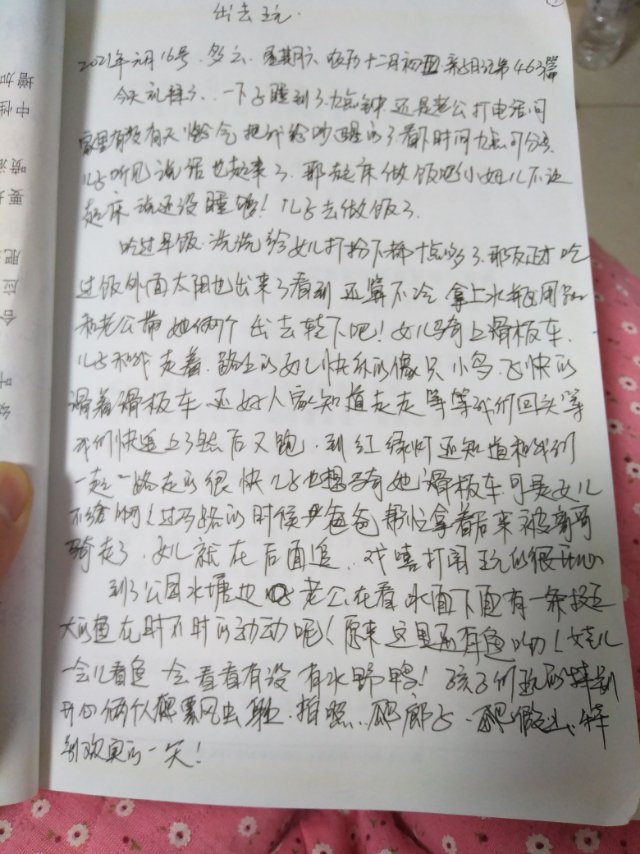 出去玩.
2021年元月16号.多云.星期六.农历十二月初四亲子日记第463篇
今天礼拜六、一下子睡到了九点钟还是老公打电话问
家里有没有天燃气把我给吵醒的了看下时间九点可分了
儿子听见说话也起来了.那起床做饭吧小女儿不让
起床说还没睡够!儿子去做饭了.
吃过早饭.洗洗给女儿打扮下都十点多了.那反正才吃
过饭外面太阳也出来了看到还算不冷拿上水和
和老公带她俩个出去转下吧!女儿骑上滑板车.
儿子和我走着.路上的女儿快乐的像只小鸟.飞快的
滑着滑板车.还好人家知道走走等等我们回头等
我们快追上了然后又跑.到红绿灯还知道和我们
一起一路走的很快儿子也想骑她滑板车可是女儿
不给啊!过马路的时候爸爸帮忙拿着后来被哥哥
骑走了.女儿就在后面追.戏嘻打闹玩的很开心
到了公园水塘边老公在看水面下面有一条挺
大的鱼在时不时的动动呢!原来这里还有鱼的!女儿
一会儿看鱼一会看看有没有水野鸭!孩子们玩的特别
开心俩个人拍照、爬廊子.爬假山.特
别欢笑的一笑!
增加
中性
喷液
要
肥
应
含